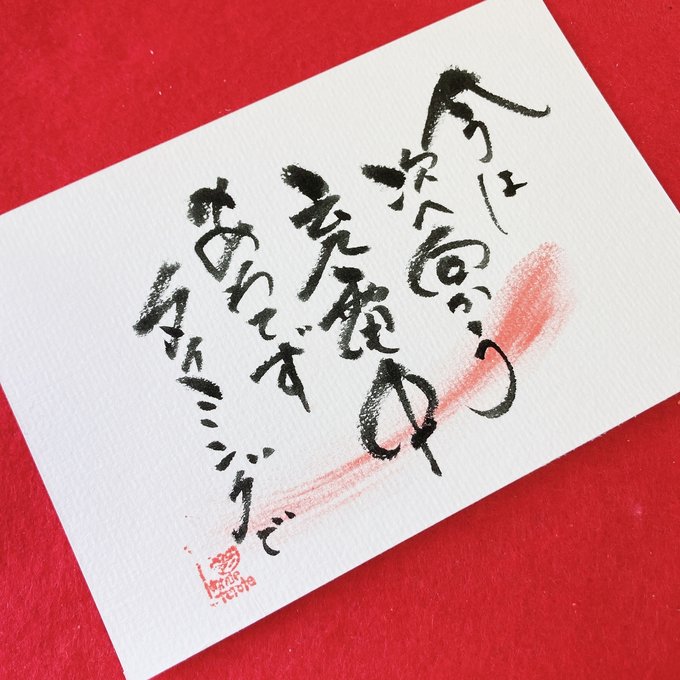 今は
次へ向かう
充電中
あわてず
タイミングで